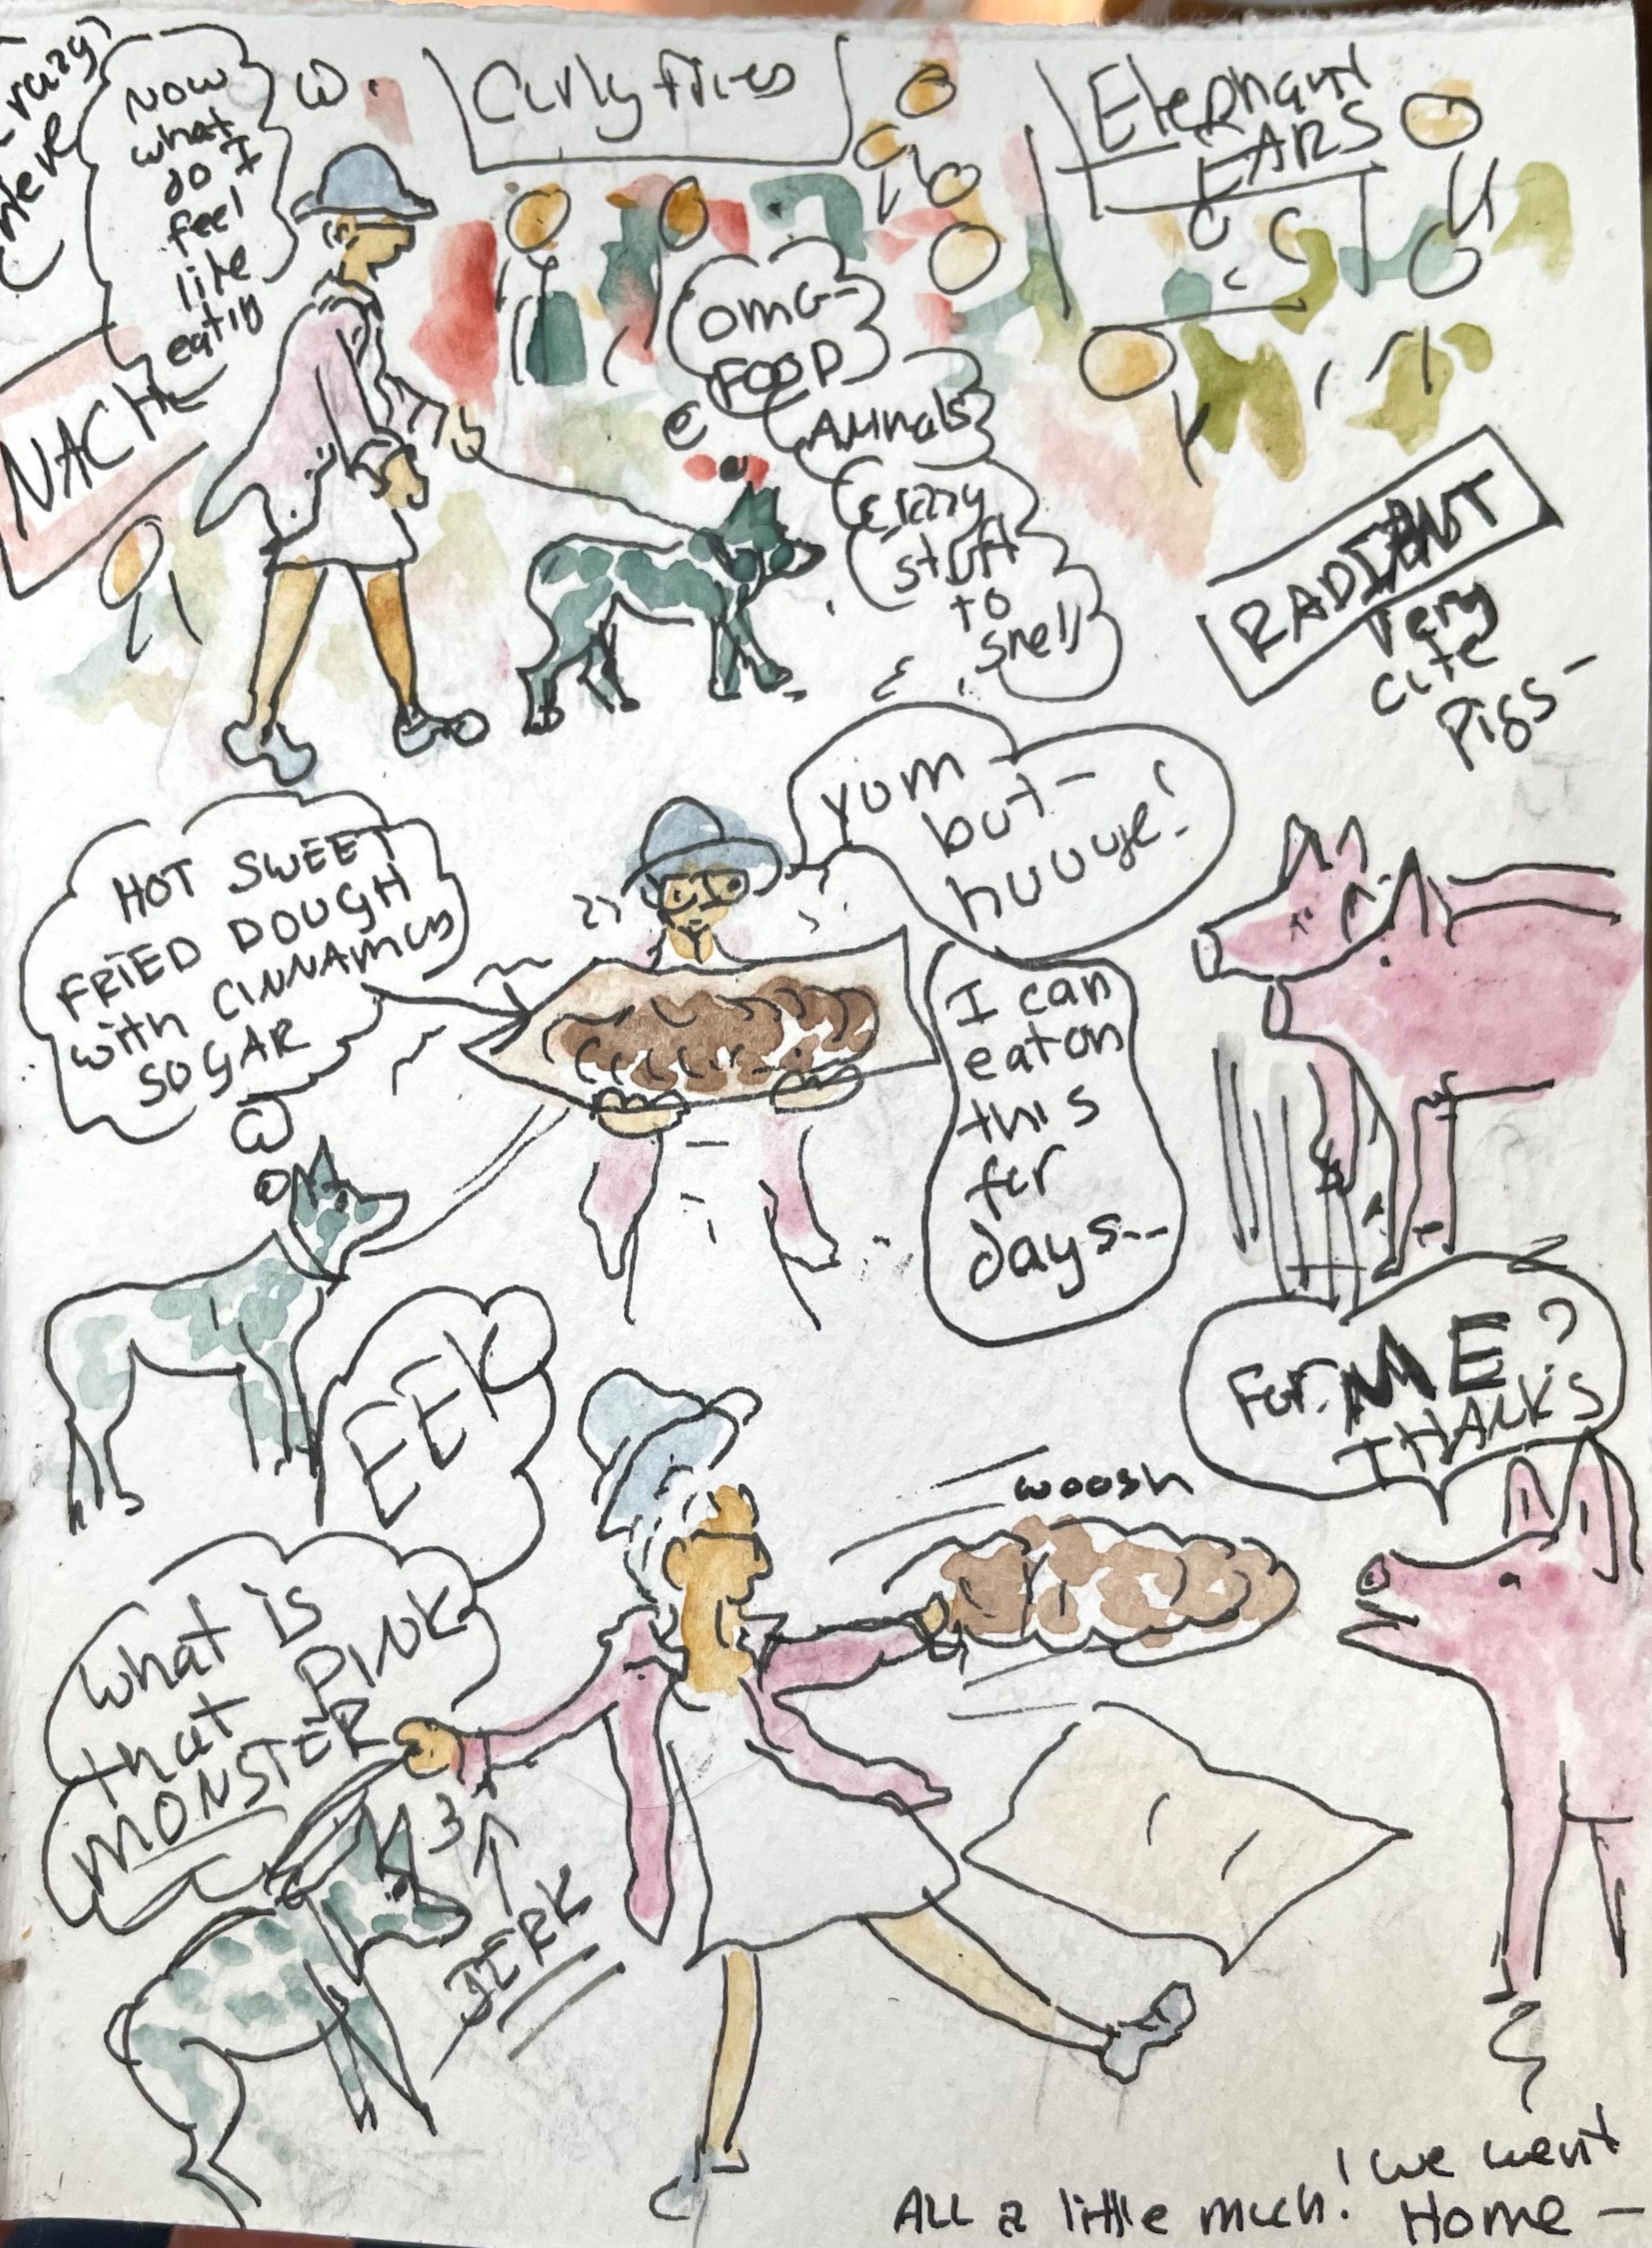 Now
what
do I
feel
like
eating
Curly Fries
Elephant
EARS
NACH
OMG-
FOOD
Animals
crazy
stuff
to
smell
RADIANT
Very
cute
Pigs-
HOT SWEET
FRIED DOUGH
with CINNAMON
SUGAR
yum
but-
huuuge!
I can
eat on
this
for
days--
For ME?
THANKS
EEK
woosh
What is
that PINK
MONSTER
JERK
ALL a little much! we went
Home -